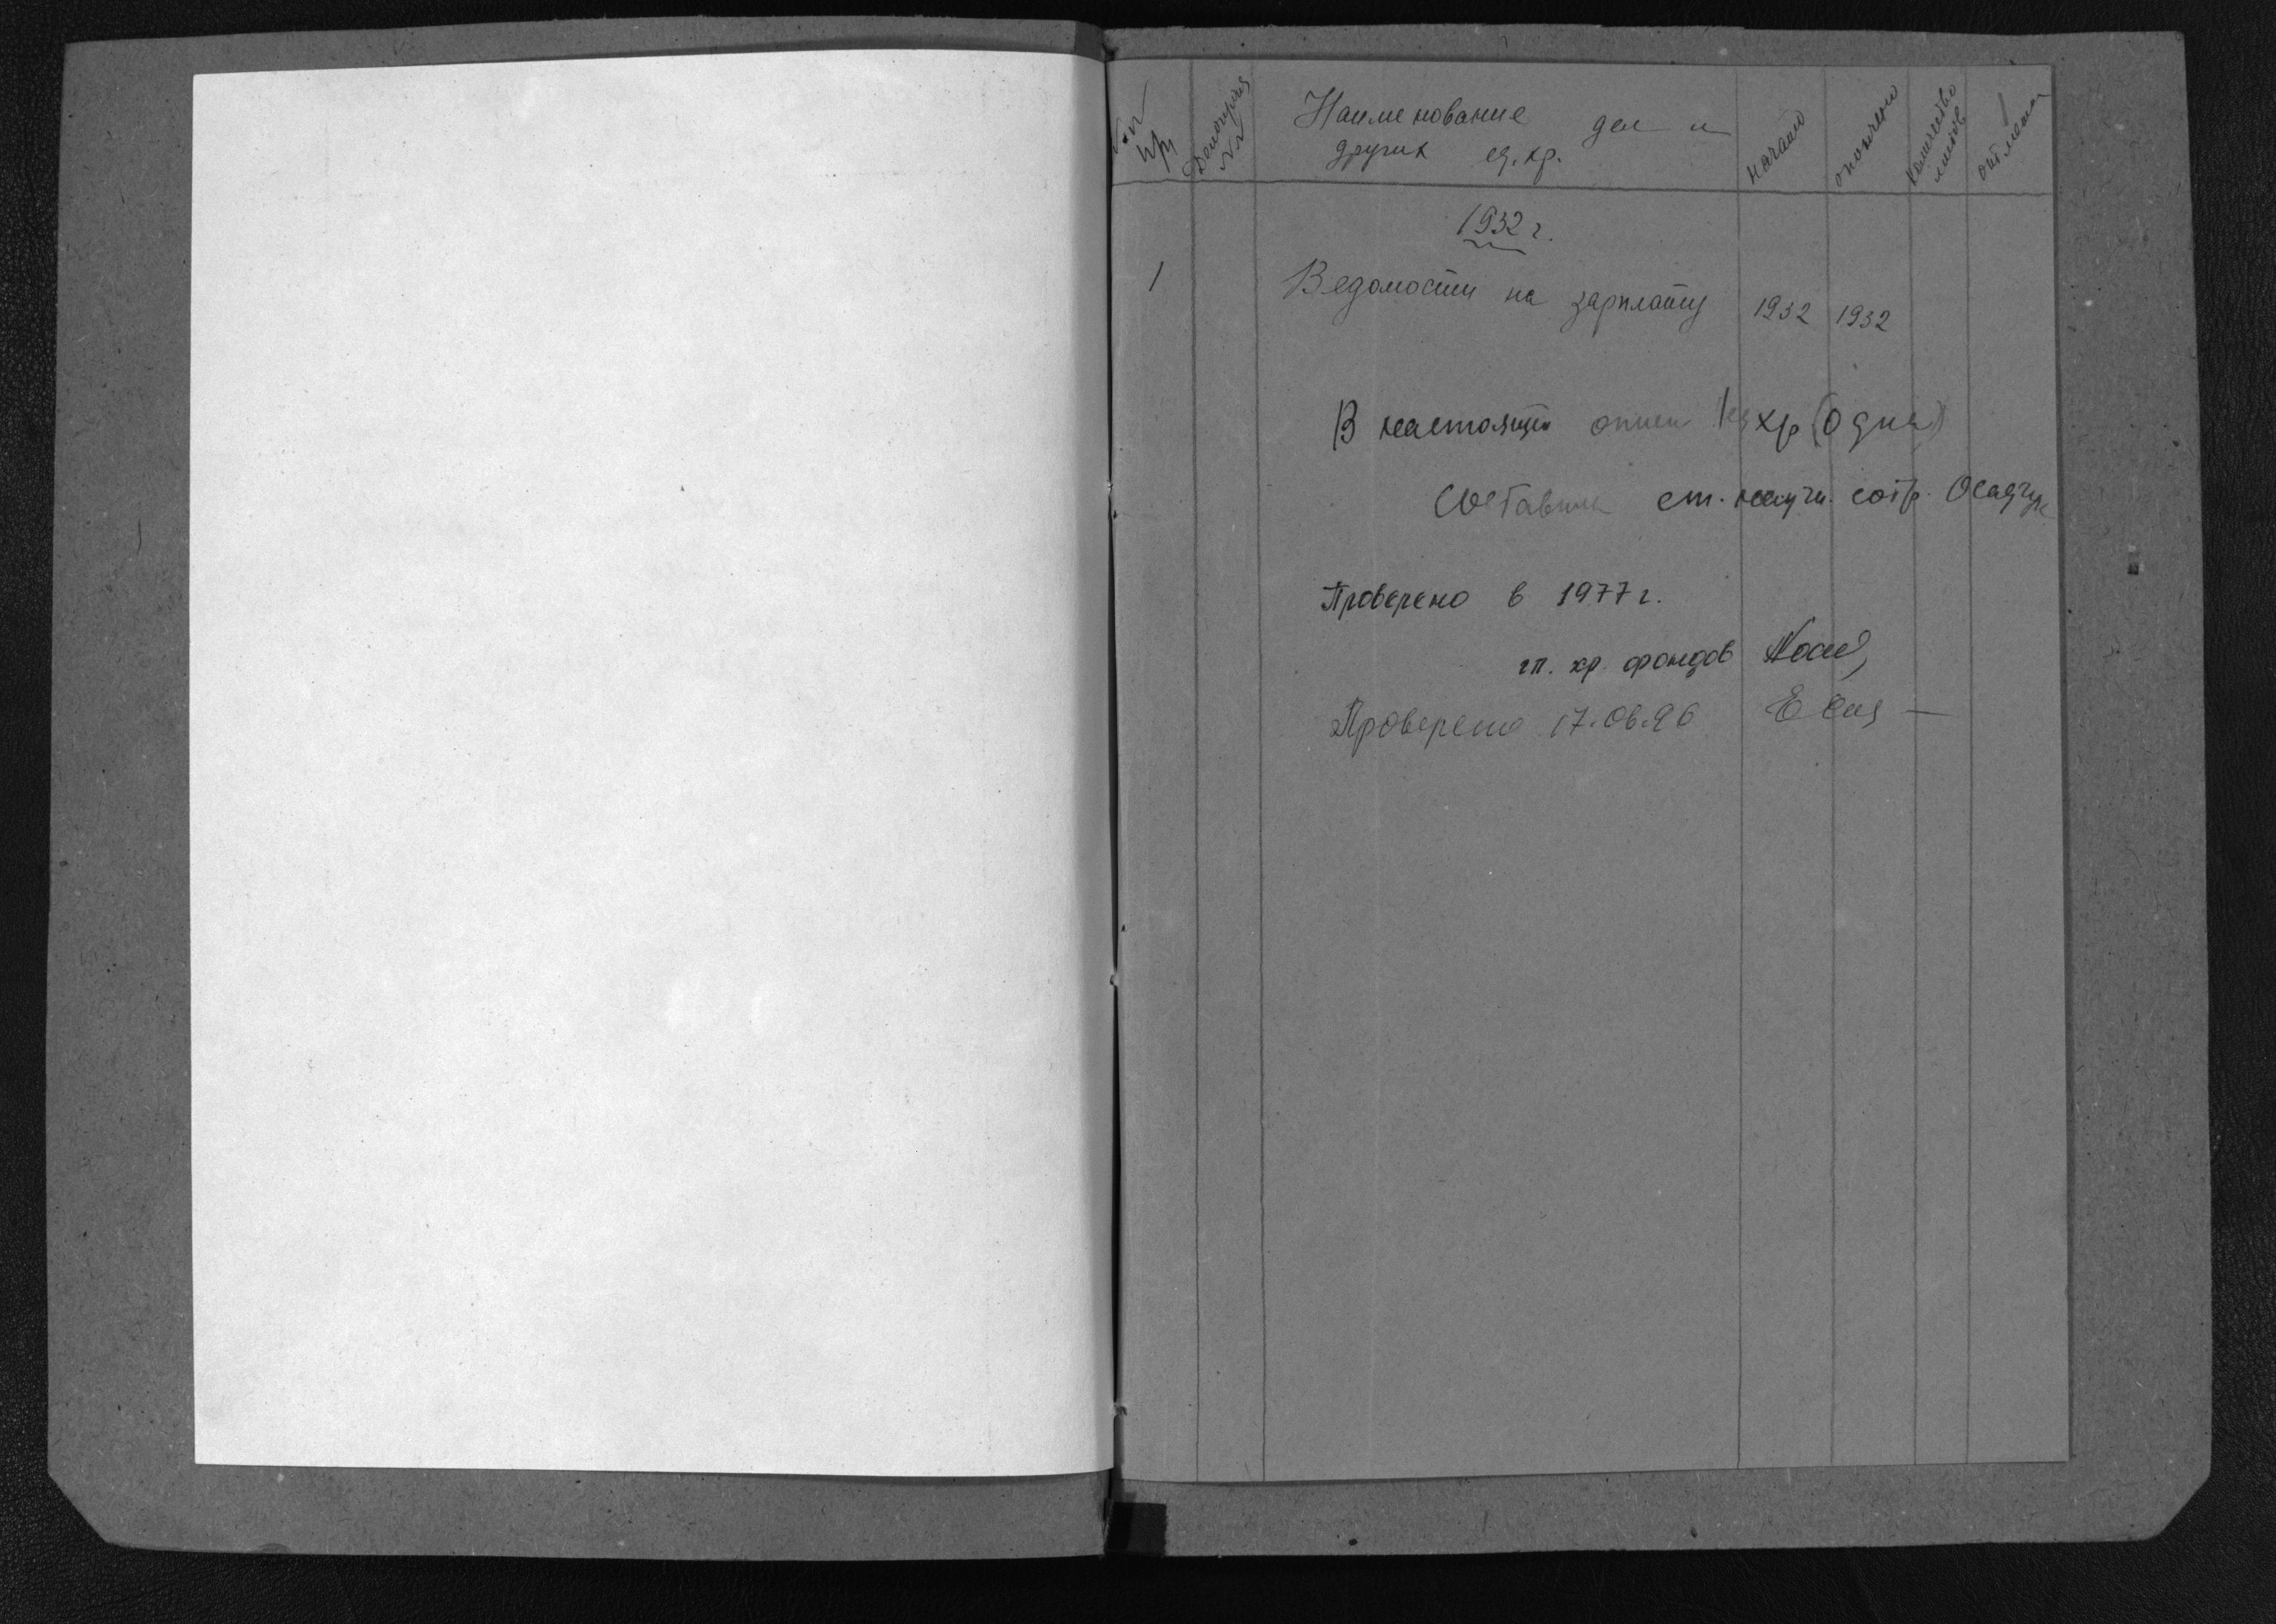 №№ п/п
Делопроизв №№
Наименование дел и
других ед. хр.
начато
окончено
количество листов
отметка
1932 г.
1 Ведомости на зарплату 1932 1932
В настоящей описи 1 ед хр (одна)
Составил ст. научн. сотр. Осадчук
Проверено в 1977 г.
гл. хр. фондов
Проверено 17.06.96